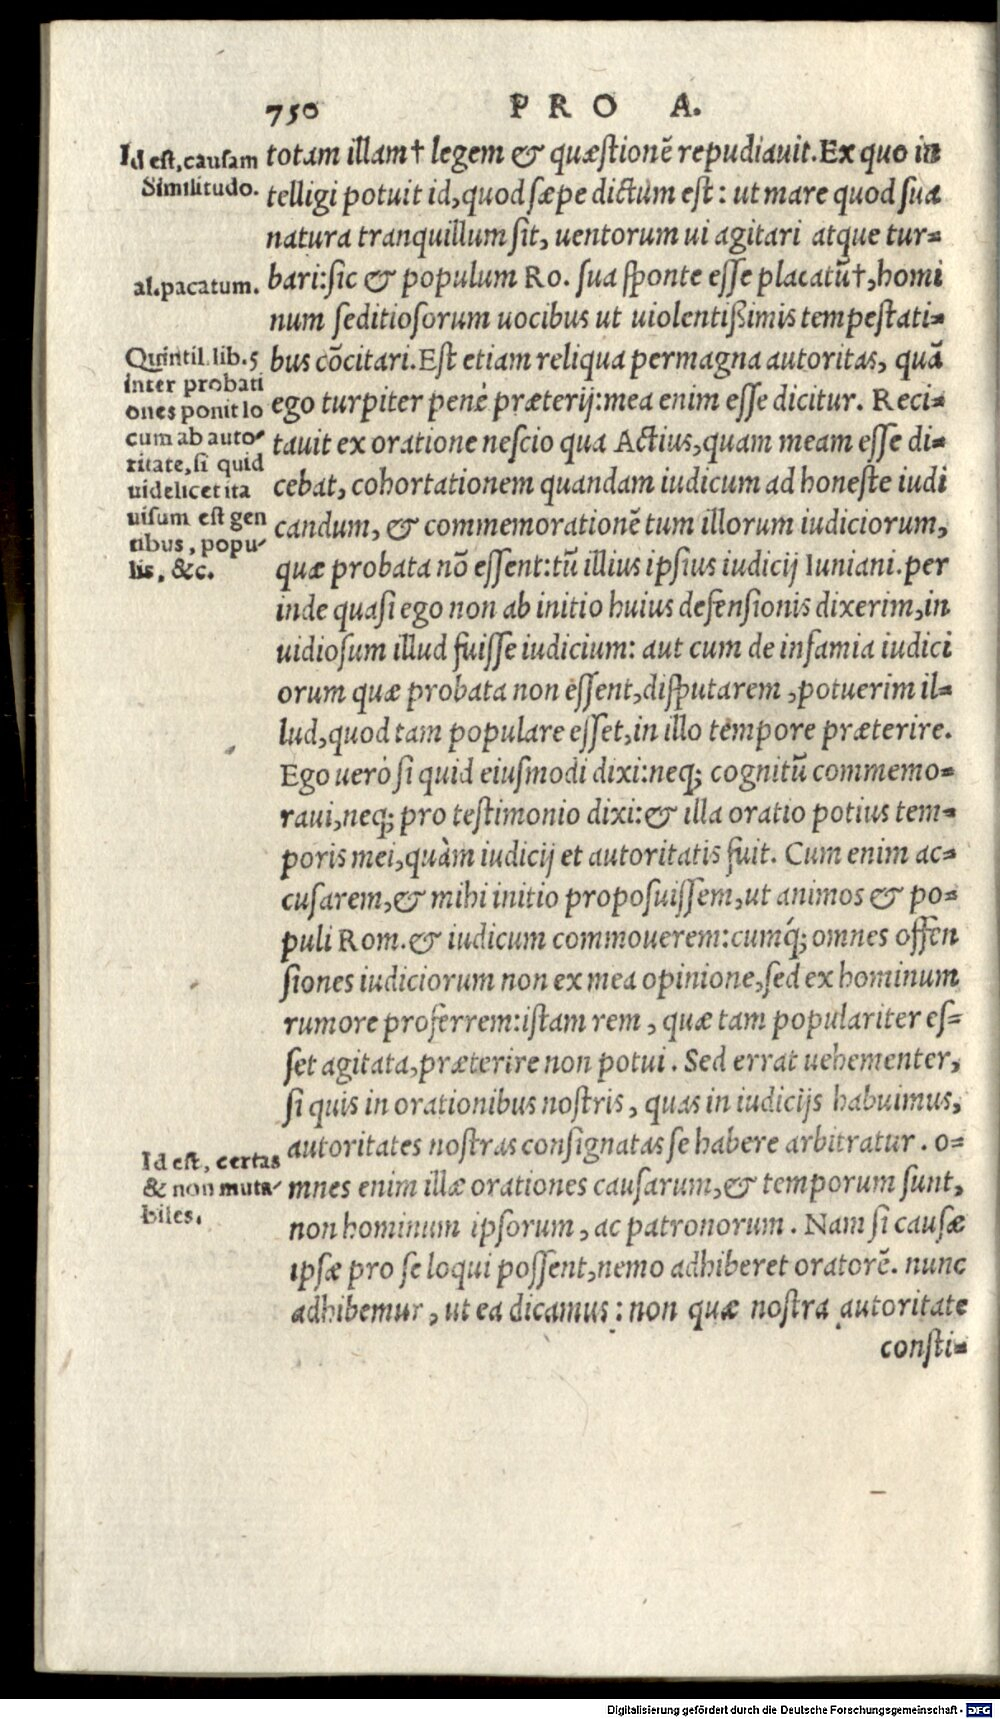 750 PRO A.
Id est, causam
Similitudo.
al. pacatum.
Quintil. lib. 5
inter probati
ones ponit lo
cum ab auto-
ritate, si quid
uidelicet ita
uisum est gen
tibus, popu-
lis, &c.
Id est, certas
& non muta-
biles.
totam illam† legem & quæstionē repudiauit. Ex quo in
telligi potuit id, quod sæpe dictum est: ut mare quod sua
natura tranquillum sit, uentorum ui agitari atque tur-
bari: sic & populum Ro. sua sponte esse placatū†, homi
num seditiosorum uocibus ut uiolentißimis tempestati-
bus cōcitari. Est etiam reliqua permagna autoritas, quā
ego turpiter penè præterij: mea enim esse dicitur. Reci-
tauit ex oratione nescio qua Actius, quam meam esse di-
cebat, cohortationem quandam iudicum ad honeste iudi
candum, & commemorationē tum illorum iudiciorum,
quæ probata nō essent: tū illius ipsius iudicij Iuniani. per
inde quasi ego non ab initio huius defensionis dixerim, in
uidiosum illud fuisse iudicium: aut cum de infamia iudici
orum quæ probata non essent, disputarem, potuerim il-
lud, quod tam populare esset, in illo tempore præterire.
Ego uerò si quid eiusmodi dixi: neq; cognitū commemo-
raui, neq; pro testimonio dixi: & illa oratio potius tem-
poris mei, quàm iudicij et autoritatis fuit. Cum enim ac-
cusarem, & mihi initio proposuissem, ut animos & po-
puli Rom. & iudicum commouerem: cumq́; omnes offen
siones iudiciorum non ex mea opinione, sed ex hominum
rumore proferrem: istam rem, quæ tam populariter es-
set agitata, præterire non potui. Sed errat uehementer,
si quis in orationibus nostris, quas in iudicijs habuimus,
autoritates nostras consignatas se habere arbitratur. o-
mnes enim illæ orationes causarum, & temporum sunt,
non hominum ipsorum, ac patronorum. Nam si causæ
ipsæ pro se loqui possent, nemo adhiberet oratorē. nunc
adhibemur, ut ea dicamus: non quæ nostra autoritate
consti-
Digitalisierung gefördert durch die Deutsche Forschungsgemeinschaft - DFG